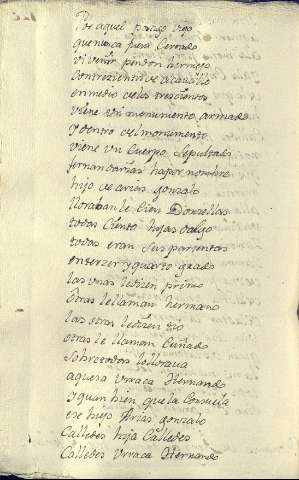 Por aquel postigo viejo
que nunca fuera Cerrado
vi venir pendon bermejo
Con trezientos de a caballo
en medio de los trescientos
viene un monumento armado
y dentro del monumento
viene un Cuerpo Sepultado
fernan darias ha por nombre
hijo de arias gonzalo
lloraban le Cien Donzellas
todas Ciento hijas dalgo
todas eran sus parientas
en terzer y quarto grado
las unas le dizen primo
otras le llaman hermano
las otras le dizen tio
otras le llaman Cuñado
sobre todas lo llorava
aquesa Urraca Hernando
y quan bien que la Consuela
ese viejo Arias gonzalo
Calledes hija Calledes
Calledes Urraca Hernando